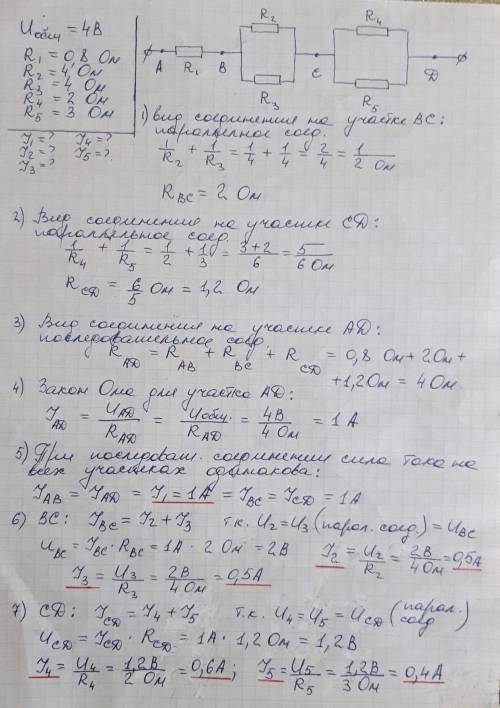 Uобщ = 4В
R₁ = 0,8 Ом
R₂ = 4 Ом
R₃ = 4 Ом
R₄ = 2 Ом
R₅ = 3 Ом
I₁ = ? I₄ = ?
I₂ = ? I₅ = ?
I₃ = ?
R₂ R₄
A R₁ B C D
R₃ R₅
1) вид соединения на участке BC:
параллельное соед.
1/R₂ + 1/R₃ = 1/4 + 1/4 = 2/4 = 1/2 Ом
R_BC = 2 Ом
2) Вид соединения на участке CD:
параллельное соед.
1/R₄ + 1/R₅ = 1/2 + 1/3 = (3+2)/6 = 5/6 Ом
R_CD = 6/5 Ом = 1,2 Ом
3) Вид соединения на участке AD:
последовательное соед.
R_AD = R_AB + R_BC + R_CD = 0,8 Ом + 2 Ом +
+ 1,2 Ом = 4 Ом
4) Закон Ома для участка AD:
I_AD = U_AD/R_AD = Uобщ./R_AD = 4В/4 Ом = 1 А
5) При последоват. соединении сила тока на
всех участках одинакова:
I_AB = I_AD = I₁ = 1А = I_BC = I_CD = 1А
6) BC: I_BC = I₂ + I₃ т.к. U₂ = U₃ (парал. соед.) = U_BC
U_BC = I_BC · R_BC = 1А · 2 Ом = 2В I₂ = U₂/R₂ = 2В/4 Ом = 0,5А
I₃ = U₃/R₃ = 2В/4 Ом = 0,5А
7) CD: I_CD = I₄ + I₅ т.к. U₄ = U₅ = U_CD (парал. соед)
U_CD = I_CD · R_CD = 1А · 1,2 Ом = 1,2В
I₄ = U₄/R₄ = 1,2В/2 Ом = 0,6А; I₅ = U₅/R₅ = 1,2В/3 Ом = 0,4А